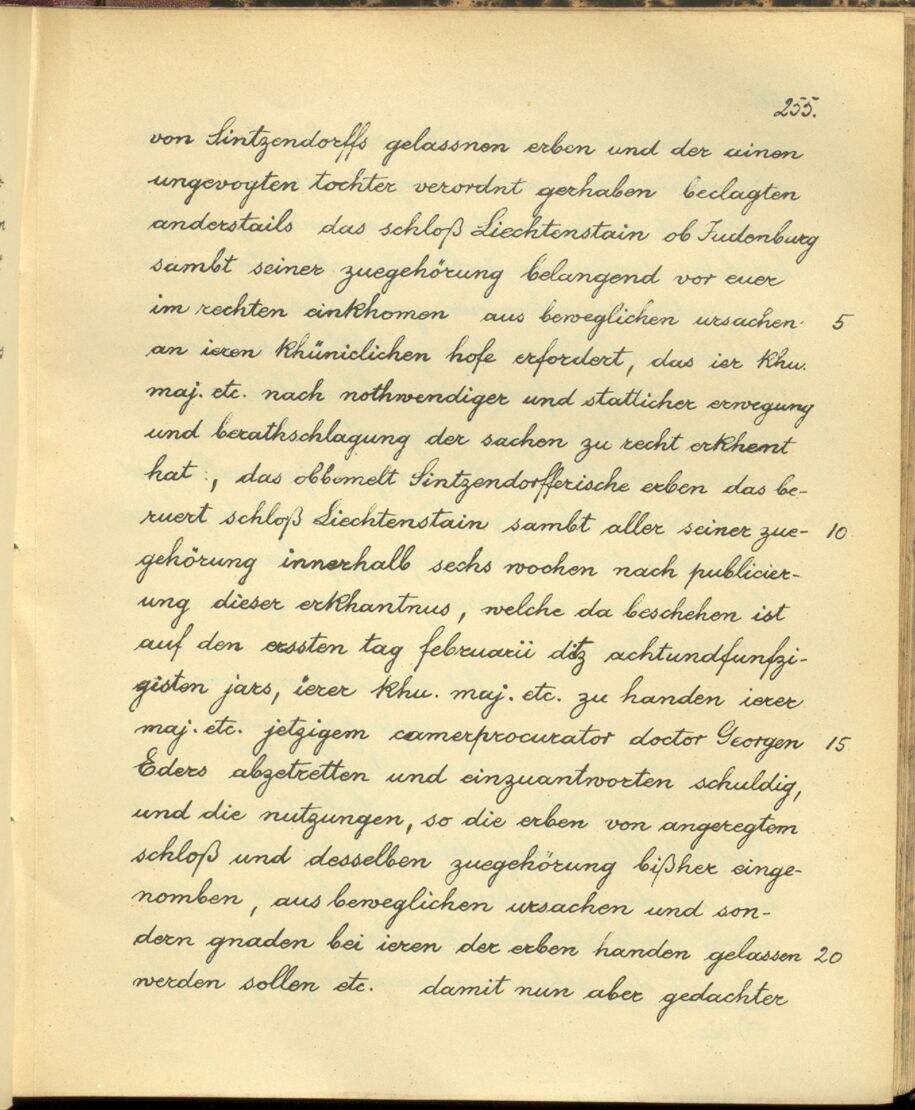 255.
von Sintzendorffs gelassnen erben und der ainen
ungevogten tochter verordnt gerhaben beclagten
anderstails das schloß Liechtenstain ob Judenburg
sambt seiner zuegehörung belangend vor euer
im rechten einkhomen aus beweglichen ursachen 5
an ieren khüniclichen hofe erfordert, das ier khu.
maj. etc. nach nothwendiger und statlicher erwegung
und berathschlagung der sachen zu recht erkhent
hat, das obbemelt Sintzendorfferische erben das be-
ruert schloß Liechtenstain sambt aller seiner zue- 10
gehörung innerhalb sechs wochen nach publicier-
ung dieser erkhantnus, welche da beschehen ist
auf den erssten tag februarii ditz achtundfunfzi-
gisten jars, ierer khu. maj. etc. zu handen ierer
maj. etc. jetzigem camerprocurator doctor Georgen 15
Eders abzetretten und einzuantworten schuldig,
und die nutzungen, so die erben von angeregtem
schloß und desselben zuegehörung bißher einge-
nomben, aus beweglichen ursachen und son-
dern gnaden bei ieren der erben handen gelassen 20
werden sollen etc. damit nun aber gedachter